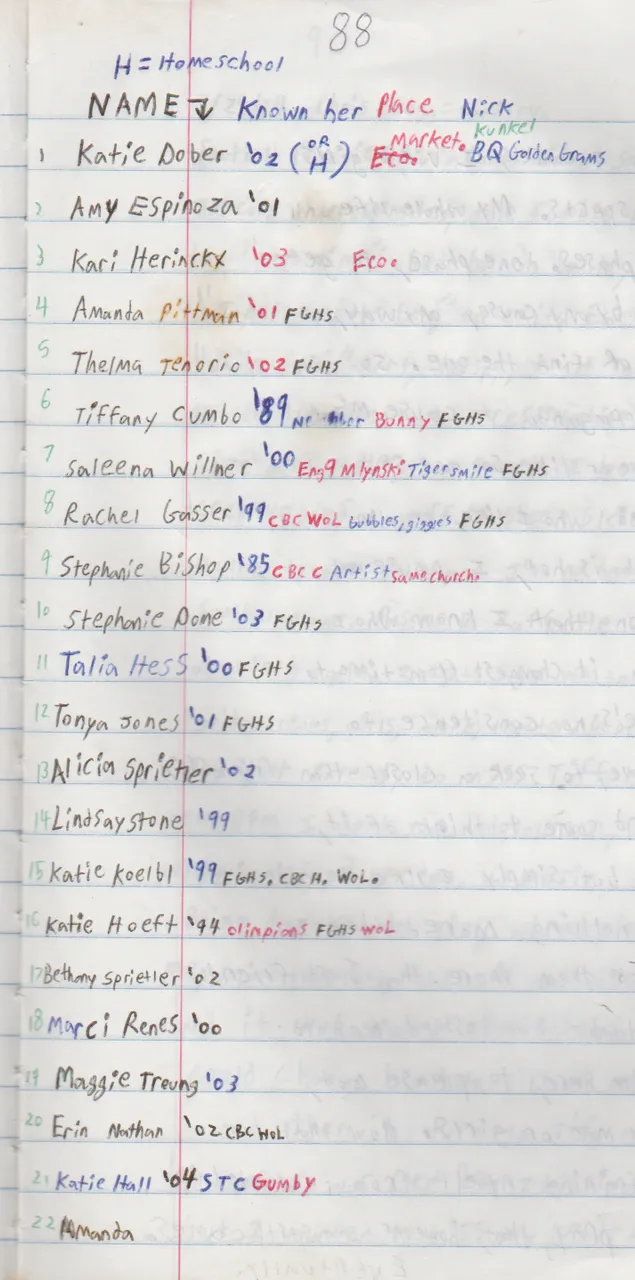 88
H = Homeschool
NAME Known her Place Nick
1 Katie Dober '02 (OR H) Eco. Market. Kunkel BQ Golden Grams
2 Amy Espinoza '01
3 Kari Herinckx '03 Eco.
4 Amanda Pittman '01 FGHS
5 Thelma Tenorio '02 FGHS
6 Tiffany Cumbo '89 Bunny FGHS
7 Saleena Willner '00 Eng9 Mlynski Tiger smile FGHS
8 Rachel Gasser '99 CBC WOL bubbles, giggles FGHS
9 Stephanie Bishop '85 CBC C Artist same church.
10 Stephanie Dome '03 FGHS
11 Talia Hess '00 FGHS
12 Tonya Jones '01 FGHS
13 Alicia Sprietler '02
14 Lindsay Stone '99
15 Katie Koelbl '99 FGHS, CBC H, WOL.
16 Katie Hoeft '94 olimpions FGHS WOL
17 Bethany Sprietler '02
18 Marci Renes '00
19 Maggie Treung '03
20 Erin Nathan '02 CBC WOL
21 Katie Hall '04 STC Gumby
22 Amanda